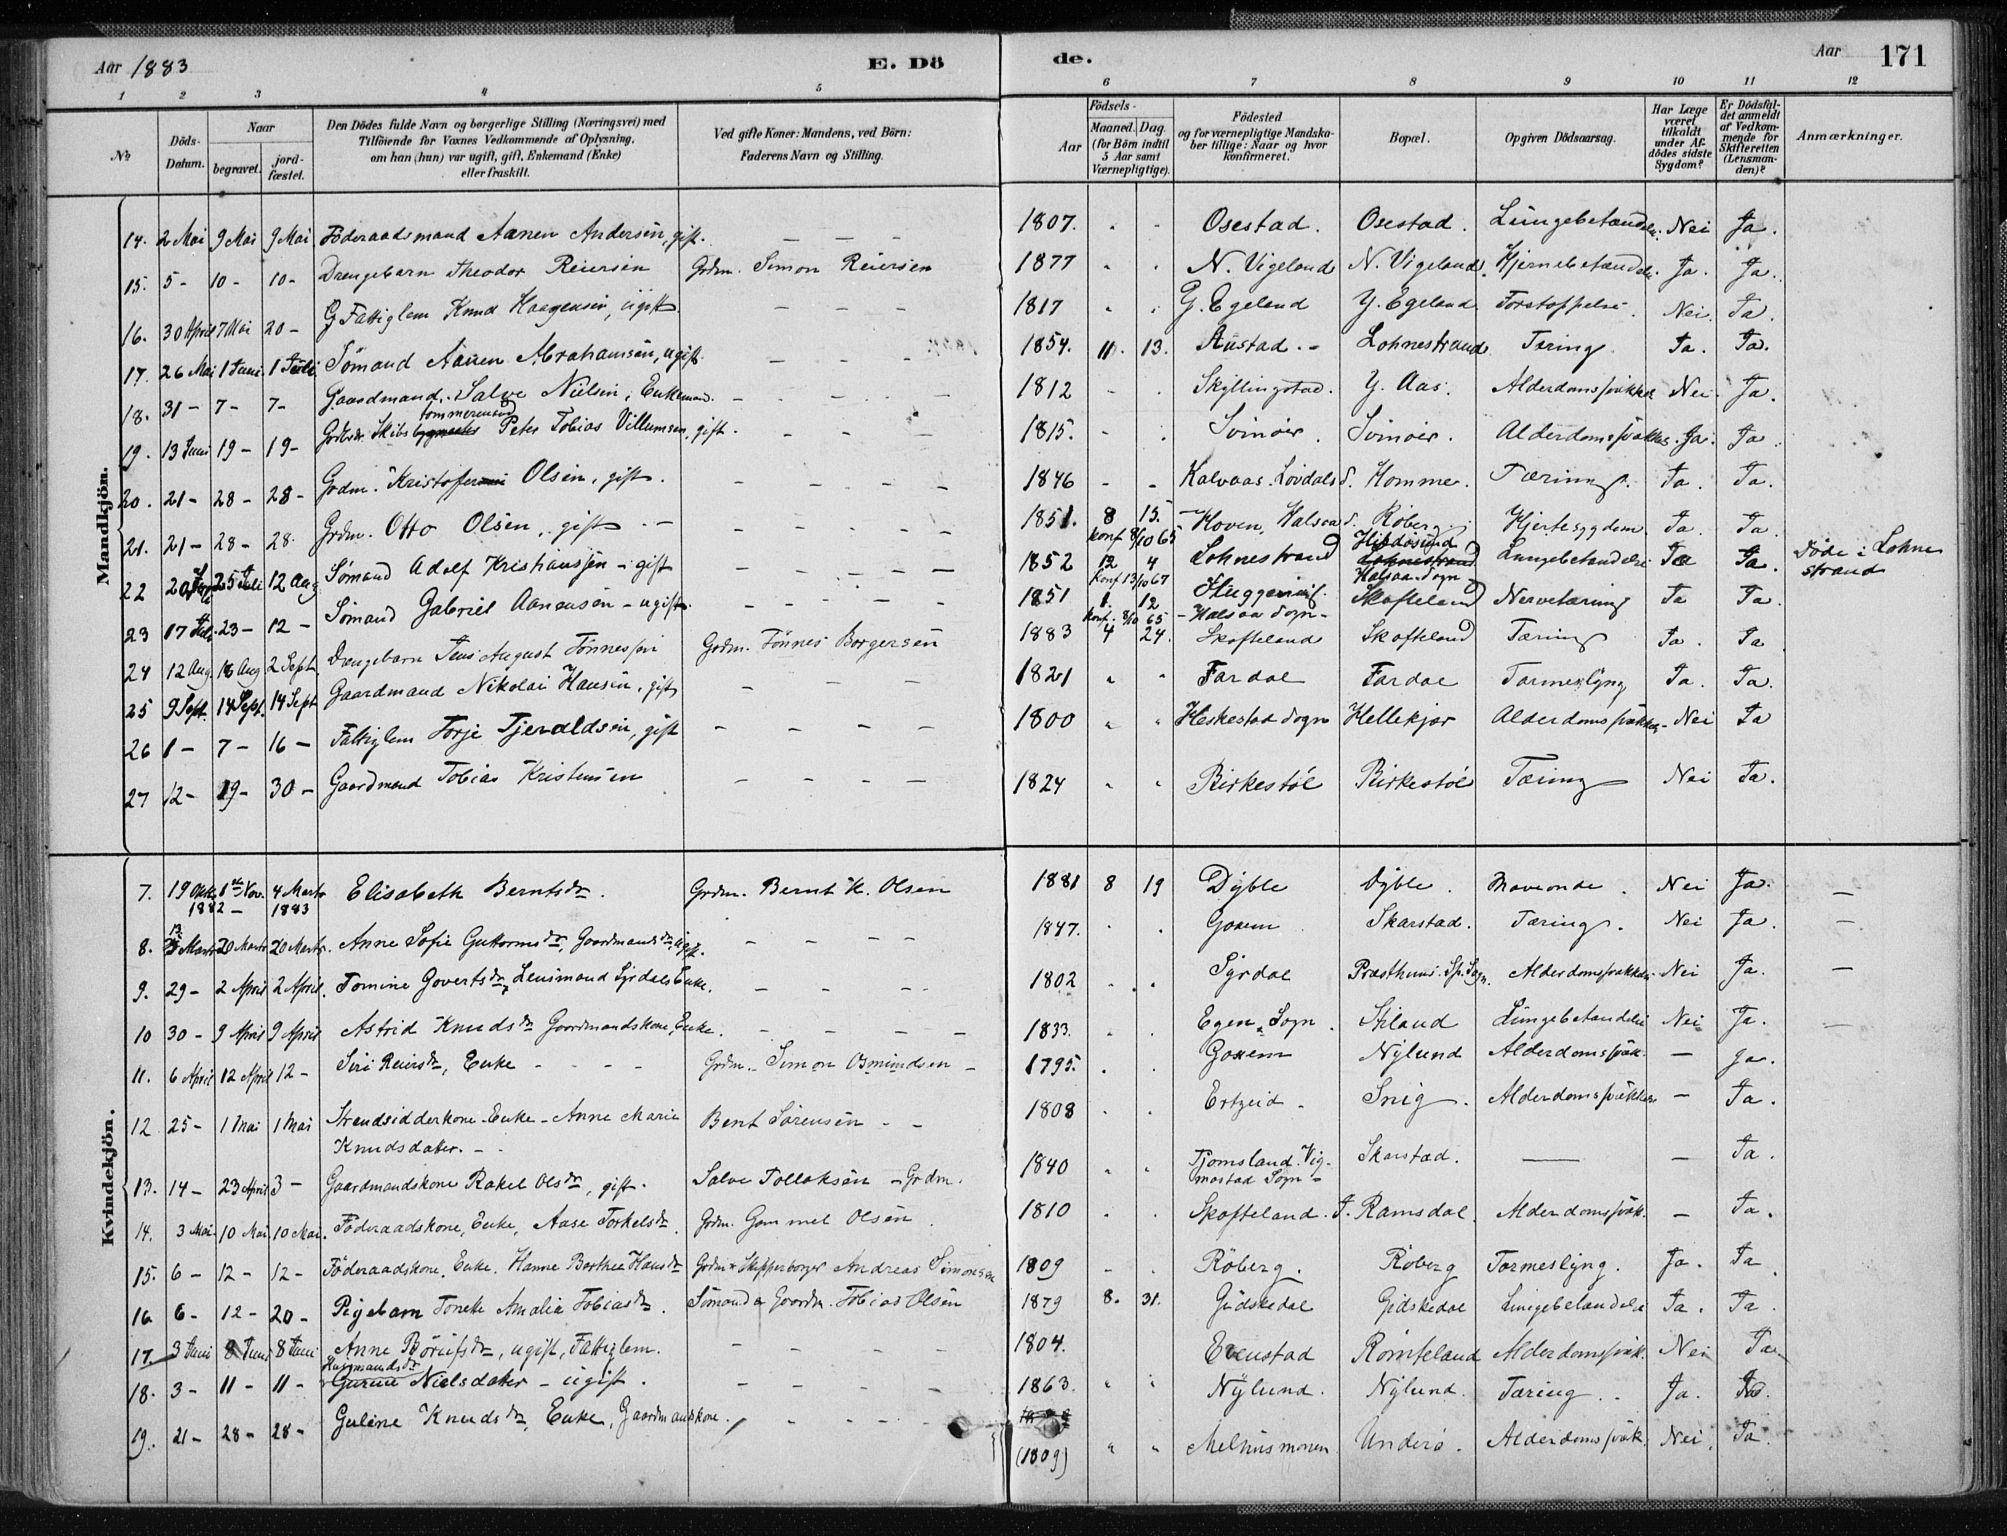 Aar 1883 E. Dö de. Aar 171
1 2 3 4 5 6 7 8 9 10 11 12
№
Döds-Datum.
Naar
begravet. jord-fæstet.
Den Dödes fulde Navn og borgerlige Stilling (Næringsvei) med
Tilföiende for Voxnes Vedkommende af Oplysning,
om han (hun) var ugift, gift, Enkemand (Enke)
eller fraskilt.
Ved gifte Koner: Mandens, ved Börn:
Faderens Navn og Stilling.
Födsels-
Aar Maaned. Dag.
(for Börn indtil
5 Aar samt
Værnepligtige).
Födested
og for værnepligtige Mandska-
ber tillige: Naar og hvor
konfirmeret.
Bopæl.
Opgiven Dödsaarsag.
Har Læge
været
tilkaldt
under Af-
dödes sidste
Sygdom?
Er Dödsfal-
det anmeldt
af Vedkom-
mende for
Skifteretten
(Lensman-
den)?
Anmærkninger.
Mandkjön.
14. 2 Mai 9 Mai 9 Mai Föderaadsmand Aanen Andersen, gift. — — — 1807. Osestad. Osestad. Lungebetændelse. Nei Ja.
15. 5 - 10 - 10 - Drengebarn Theodor Reiersen Grdm. Simon Reiersen 1877 N. Vigeland N. Vigeland Hjernebetændelse. Ja. Ja.
16. 30 April 7 Mai 20 - Fattiglem Knud Haagensen, ugift — — — 1817 Y. Egeland Y. Egeland Forstoppelse. Nei. Ja.
17. 26 Mai 1 Juni 1 Juli Sömand Aanen Abrahamsen, ugift. — — — 1854. 11. 13. Austad. - Lohnestrand Tæring. Ja. Ja.
18. 31 - 7 - 7 - Gaardmand. Salve Nielsen, Enkemand. — — — 1812 Skyllingstad. Y. Aas. Alderdomssvækkelse Nei Ja.
19. 13 Juni 19 - 19 - Skibstømmermand Peter Tobias Villumsen, gift. — — — 1815. Svinøer. Svinøer. Alderdomssvækkelse. Ja. Ja.
20. 21 - 28 - 28 - Grdm. Kristofer Olsen, gift. — — — 1846 - - Kalvaas. Lovdals S. Homme. Tæring. Ja. Ja.
21. 21 - 28 - 28. Grdm. Otto Olsen, gift - — — — 1851. 8 15. Hoven, Halsaa S. Röberg. Hjertesygdom. Ja. Ja.
konf 8/10 65
22 20 Juli 25 Juli 12 Aug Sømand Adolf Kristianssen - gift — — — 1852 12 4 Lohnestrand Lungebetændelse Ja Ja. Döde i Lohne
strand
Konf 13/10 67 Halsaa Sogn
23 17 Juli 23 - 12 - Sømand Gabriel Aanensen - ugift. — — — 1851 1. 12 Skofteland Nervetæring Ja Ja.
konf. 8/10 65 - Halsaa Sogn -
24 12 Aug 18 Aug 2 Sept. Drengebarn Jens August Tönnessen Grdm. Tönnes Borgersen 1883 4 24. Skofteland Skofteland Tæring Ja. Ja
25 9 Sept. 14 Sept. 14 Sept Gaardmand Nikolai Hansen, gift — — — 1821 Fardal Fardal Tarmeslyng Ja. Ja.
26 1 - 7 - 16 - Fattiglem Terje Tjeraldsen, gift — — — 1800 Heskestad Sogn Hellekjær Alderdomssvækkelse - Nei Ja
27 12 - 19 - 30 - Gaardmand Tobias Kristensen — — — 1824 Birkestøl Birkestøl Tæring Nei Ja.
Kvindekjön.
7. 19 Okt. 1882 1ste Nov. - 4 Marts 1883 Elisabeth Berntsdr. Grdm. Bernt K. Olsen 1881 8 19 Dyble Dyble. Maveonde. Nei Ja. —
8. 13 Marts 20 Marts 20 Marts. Anne Sofie Guttormsdr, Gaardmandsdr, ugift. — — — 1847. Goxem Skarstad. Tæring. Nei Ja. —
9. 29 - 2 April 2 April. Tomine Govertsdr, Lensmand Syrdals Enke. — — — 1802 Syrdal Præsthuus. Sp. Sogn. Alderdomssvækkelse Nei Ja. —
10 30 - 9 April 9 April Astrid Knudsdr Gaardmandskone, Enke. — — — 1833. Egen. Sogn. Stiland Lungebetændelse Nei Ja. —
11. 6 April 12 April 12 - Siri Reiersdr, Enke - - - Grdm. - Simon Osmundsen - 1795. Goxem Nylund Alderdomssvæk. — Ja.
12 25 - 1 Mai 1 Mai Strandsidderkone - Enke - Anne Marie Bent Sørensen - - 1808 Ertzeid - Snig. Alderdomssvækkelse — Ja.
Knudsdater. -
13. 14 - 23 April 3 - Gaardmandskone Rakel Olsdr, gift. Salve Tollaksen - Grdm. 1840 Tjomsland. Vig-
mostad Sogn - Skarstad. — — Ja.
14. 3 Mai 10 Mai 10 Mai. Föderaadskone, Enke, Aase Torkelsdr. Grdm. Gammel Olsen. 1810 Skofteland. J. Ramsdal. Alderdomssvæk. — Ja.
15. 6 - 12 - 12 - Föderaadskone. Enke. Hanne Barthea Hansdr Grdm & Skipperborger Andreas Simonsen 1809 Röberg. Röberg Tarmeslyng. Ja. Ja
16 6 - 12 - 20 - Pigebarn Amalia Tobiasdr. Sömand & Gaardm. Tobias Olsen 1879 8. 31. Gidskedal Gidskedal Lungebetændelse Ja. Ja.
17. 3 Juni 8 Juni 8 Juni Anne Börufsdr, ugift, Fattiglem. — — — 1804. Evenstad Römteland Alderdomssvæk. Nei Ja
18. 3 - 11 - 11 - Gurine Nielsdater - ugift. — — — 1863. Nylund. Nylund. Tæring. - Ja. Ja.
19. 21 - 28 - 28 - Guline Knudsdr, Enke, Gaardmandskone. — — — (1809) Melhusmonen Underö. Alderdomssvæk. Nei. Ja.